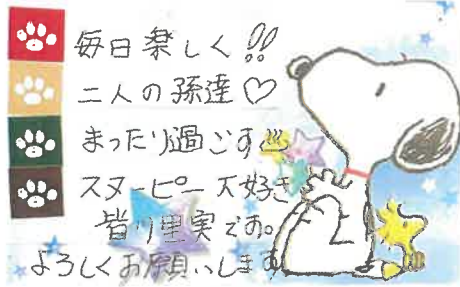 毎日楽しく!!
二人の孫達♡
まったり過ごす♨
スヌーピー大好き
皆川里実です。
よろしくお願いします